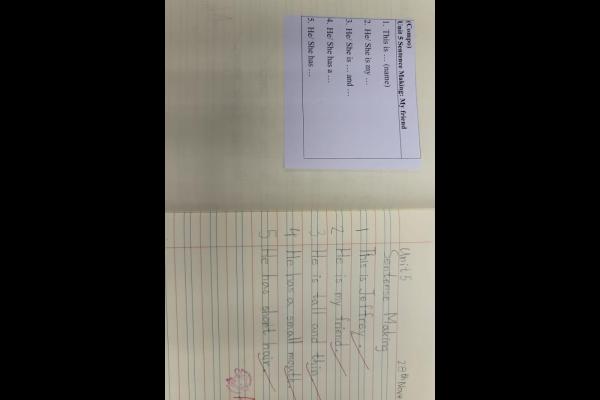 (Compo)
Unit 5 Sentence Making: My friend
1. This is … (name)
2. He/ She is my …
3. He/ She is … and …
4. He/ She has a …
5. He/ She has …
28th Nove
Unit 5
Sentense Making
1 This is Jeffrey.
2 He is my friend.
3 He is tall and thin.
4 He has a small mouth.
5 He has short hair.